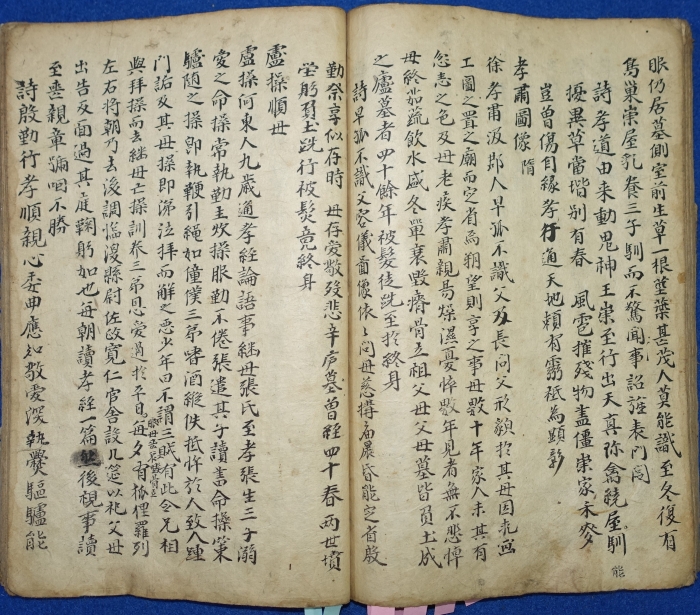 眼仍居墓側室前生草一根莖葉甚茂人莫能識至冬復有
鳥巢崇屋乳養三子馴而不驚聞事詔旌表門閭
詩孝道由来動鬼神王崇至行出天真弥禽繞屋馴
擾異草當堦别有春 風雹摧殘物盡僵崇家禾麥
豈曽傷自緣孝行通天地頼有靈祗為顕彰
孝肅圖像 隋
徐孝肅汲郡人早孤不識父及長問父形貌於其母因求畫
工圖之置之廟而定省焉朔望則享之事母數十年家人未見其有
忿恚之色及母老疾孝肅親易燥濕憂悴數年見者無不悲悼
母終茹蔬飲水盛冬單衰毁瘠骨立祖父母父母墓皆負土成
之廬墓者四十餘年被髮徒跣至於終身
詩早孤不識父容儀畫像依〻問母慈搆庿晨昏能定省殷
能
勤祭享似存時 毋存愛敬殁悲辛廬墓曽經四十春两世墳
塋躬負土跣行被髮竟終身
盧操順母
盧操河東人九歲通孝經論語事継母張氏至孝張生三子溺
愛之命操常執勤主炊操服勤不倦張遣其子讀書命操策
驢随之操即執鞭引繩如僮僕三弟嗜酒縱佚抵忤於人致人踵
門詬及其母操即涕泣拜而解之惡少年曰不謂三賊有此令兄相
與拜操而去継母亡操訓養三弟恩愛過於平日毎夕有狐狸羅列
左右将朝乃去後調臨渙縣尉佐政寛仁官舍設几筵以祀父母
出告反面過其庭鞠躬如也每朝讀孝經一篇後視事讀
至喪親章號咽不勝
詩殷勤行孝順親心委曲應知敬愛深執爨驅驢能